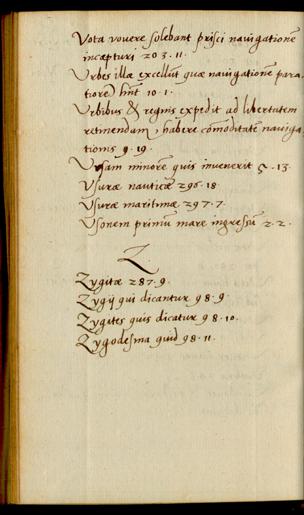 Vota vovere solebant prisci navigationẽ
incæpturi 203.11.
Urbes illæ excellũt quæ navigationẽ para-
tiorẽ hñt 10.1.
Urbibus & regnis expedit ad libertatem
retinendam habere cõmoditatẽ naviga-
tionis 9.19.
Ursam minorẽ quis invenerit 5.13.
Usuræ nauticæ 296.18.
Usuræ maritimæ 297.7.
Usonem primũ mare ingressũ 2.2.
Z.
Zygitæ 287.9.
Zygij qui dicantur 98.9.
Zygites quis dicatur 98.10.
Zygodesma quid 98.11.